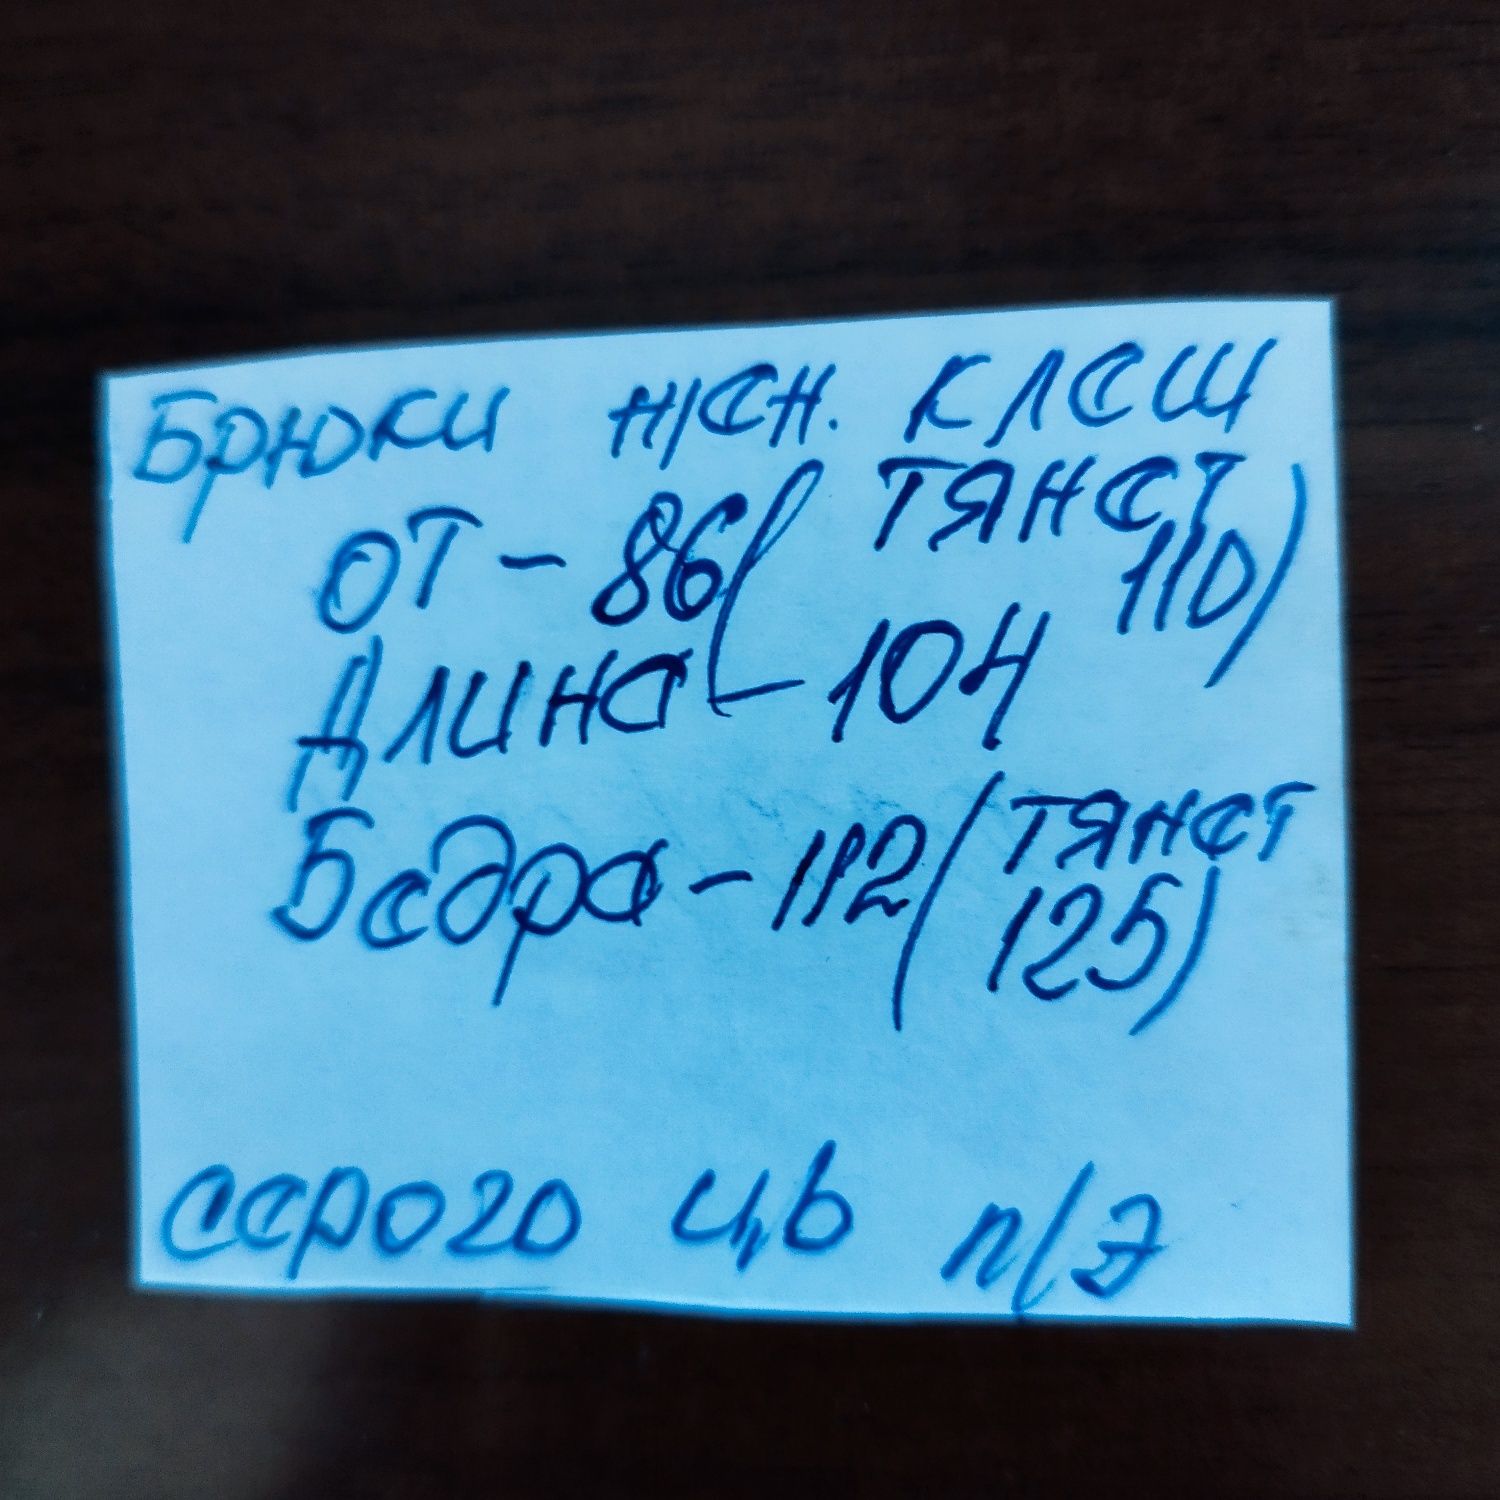 Брюки жен. клеш
ОТ - 86 ( тянет 110)
Длина - 104
Бедра - 112 ( тянет 125)
серого цв п/э